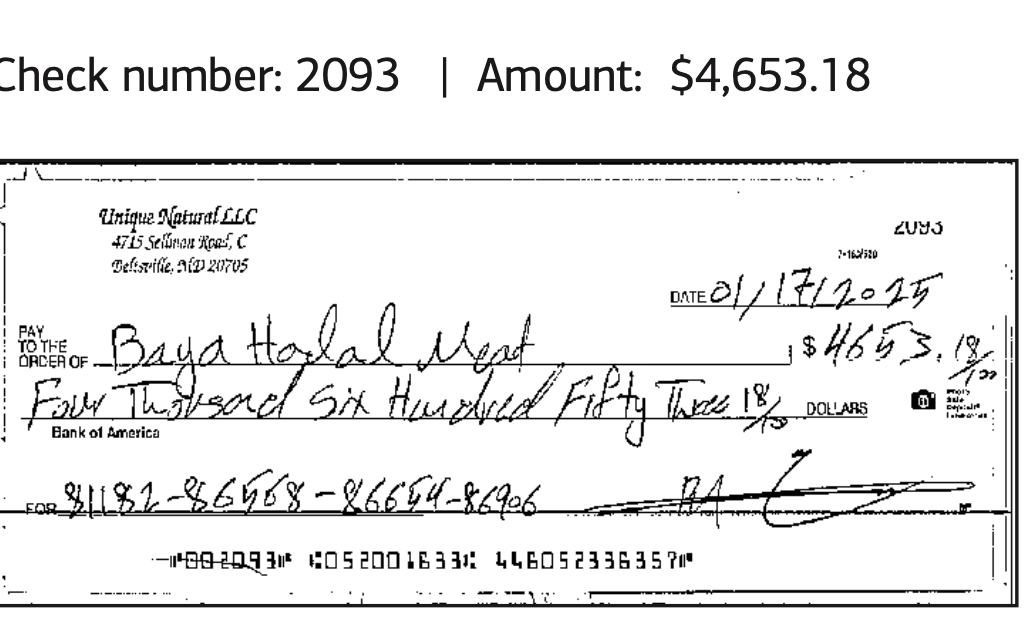 Check number: 2093 | Amount: $4,653.18
Unique Natural LLC
4715 Sellman Road, C
Beltsville, MD 20705
2093
7-163/520
DATE 01/17/2025
PAY TO THE ORDER OF Baya Halal Meat $ 4653.18/100
Four Thousand Six Hundred Fifty Three 18/100 DOLLARS
Bank of America
FOR 81182-86568-86654-86906
⑈002093⑈ ⑆052001633⑆ 446052336357⑈